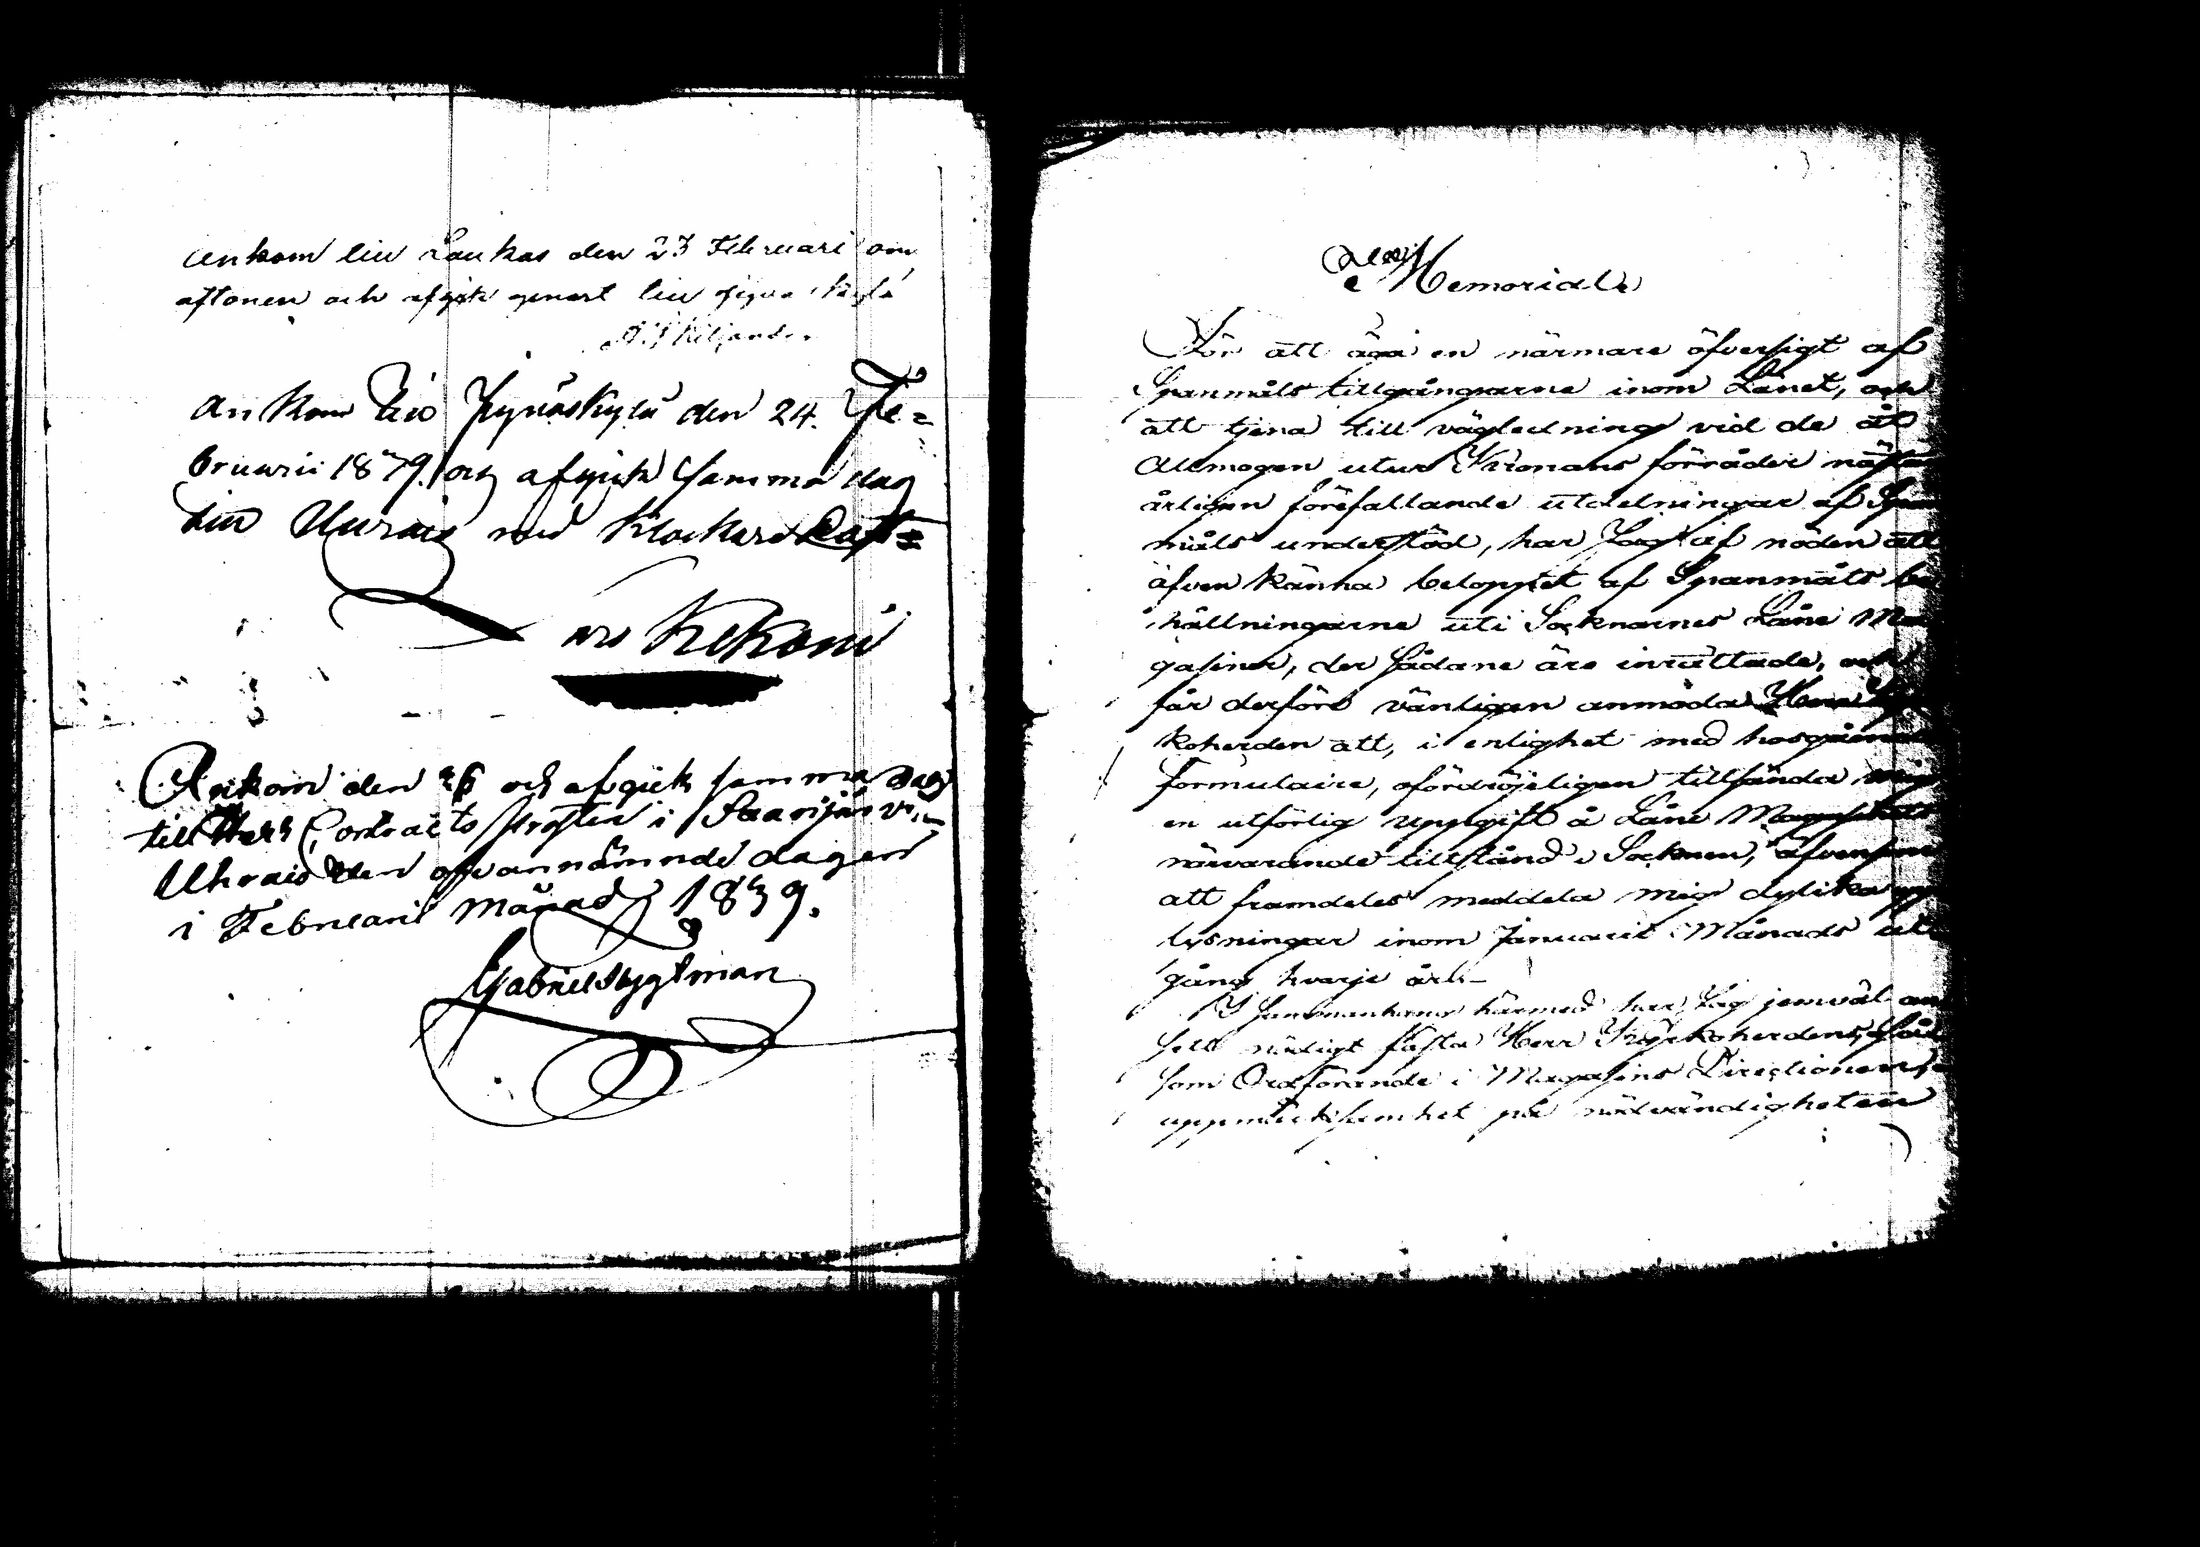 Ankom till Laukas den 23 Februari om
aftonen och afgick genast till
Kiljander
Ankom till Jyväskylä den 24. Fe=
bruarii 1839. och afgick samma dag
till Uurais med Klockare
Kekoni
Ankom den 26 och afgick samma dag
till Herr Contracts Prosten i Saarijärvi
Uhrais den ofvannämnde dagen
i Februarii Månad 1839.
Gabriel Hygtman
Memorial
För att äga en närmare öfversigt af
Spanmåls tillgångarne inom Länet, och
att tjena till vägledning vid de åt
Allmogen utur Kronans förråder nästan
årligen förefallande utdelningar af Span
måls understöd, har Jag af nöden att
äfven känna beloppet af Spanmåls be
hållningarne uti Socknarnes Låne Ma
gasiner, der sådane äro inrättade, och
får derföre vänligen anmoda Herr Kyr
koherden att, i enlighet med hosgående
formulaire, ofördröjeligen tillsända mig
en utförlig uppgift å Låne Magasinets
närvarande tillstånd i Socknen, äfvensom
att framdeles meddela mig dylika upp
lysningar inom Januarii Månads ut
gång hvarje år.
I sammanhang härmed har Jag jemväl an
sett nödigt fästa Herr Kyrkoherdens, såsom
som Ordförande i Magasins Directionen,
uppmärksamhet på nödvändigheten